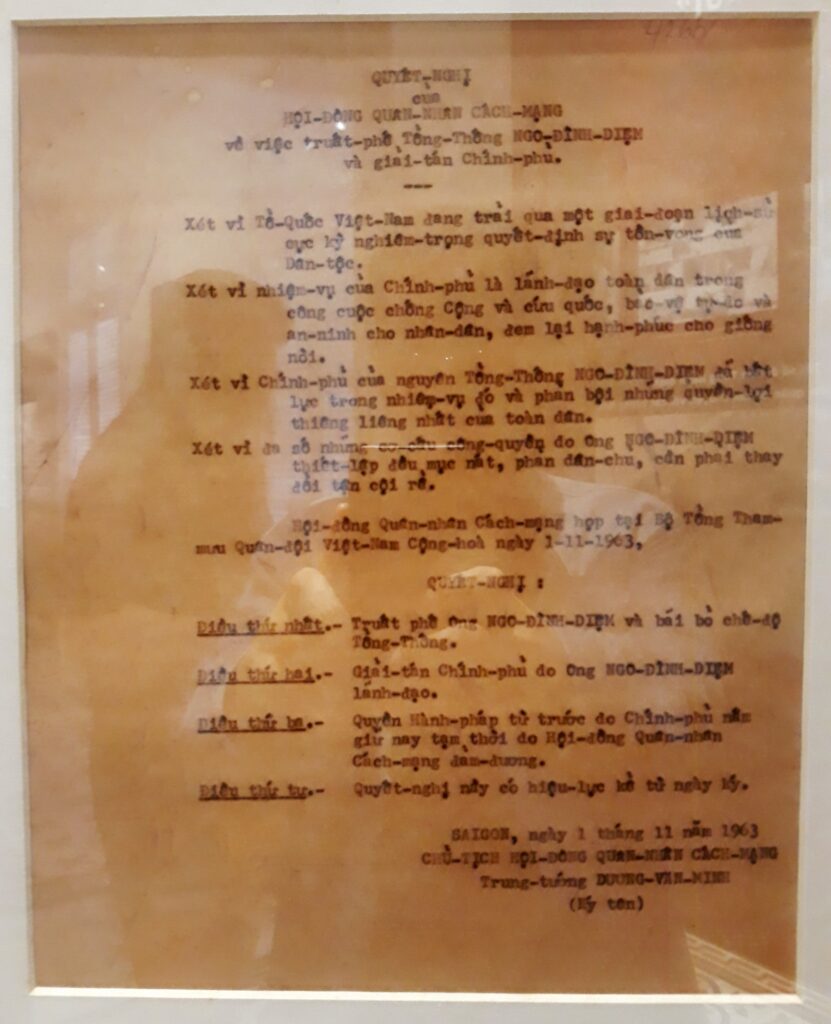 4260
QUYẾT-NGHỊ
của
HỘI-ĐỒNG QUÂN-NHÂN CÁCH-MẠNG
về việc truất-phế Tổng-Thống NGO-ĐÌNH-DIỆM
và giải-tán Chính-phủ.
---
Xét vì Tổ-Quốc Việt-Nam đang trải qua một giai-đoạn lịch-sử
cực kỳ nghiêm-trọng quyết-định sự tồn-vong của
Dân-tộc.
Xét vì nhiệm-vụ của Chính-phủ là lãnh-đạo toàn dân trong
công cuộc chống Cộng và cứu quốc, bảo-vệ tự-do và
an-ninh cho nhân-dân, đem lại hạnh-phúc cho giống
nòi.
Xét vì Chính-phủ của nguyên Tổng-Thống NGO-ĐÌNH-DIỆM đã bất
lực trong nhiệm-vụ đó và phản bội những quyền-lợi
thiêng liêng nhất của toàn dân.
Xét vì đa số những cơ-cấu công-quyền do Ông NGO-ĐÌNH-DIỆM
thiết-lập đều mục nát, phản dân-chủ, cần phải thay
đổi tận cội rễ.
Hội-đồng Quân-nhân Cách-mạng họp tại Bộ Tổng Tham-
mưu Quân-đội Việt-Nam Cộng-hoà ngày 1-11-1963,
QUYẾT-NGHỊ :
Điều thứ nhất.- Truất phế Ông NGO-ĐÌNH-DIỆM và bãi bỏ chế-độ
Tổng-Thống.
Điều thứ hai.- Giải-tán Chính-phủ do Ông NGO-ĐÌNH-DIỆM
lãnh-đạo.
Điều thứ ba.- Quyền Hành-pháp từ trước do Chính-phủ nắm
giữ nay tạm thời do Hội-đồng Quân-nhân
Cách-mạng đảm-đương.
Điều thứ tư.- Quyết-nghị này có hiệu-lực kể từ ngày ký.
SAIGON, ngày 1 tháng 11 năm 1963
CHỦ-TỊCH HỘI-ĐỒNG QUÂN-NHÂN CÁCH-MẠNG
Trung-tướng DƯƠNG-VĂN-MINH
(Ký tên)